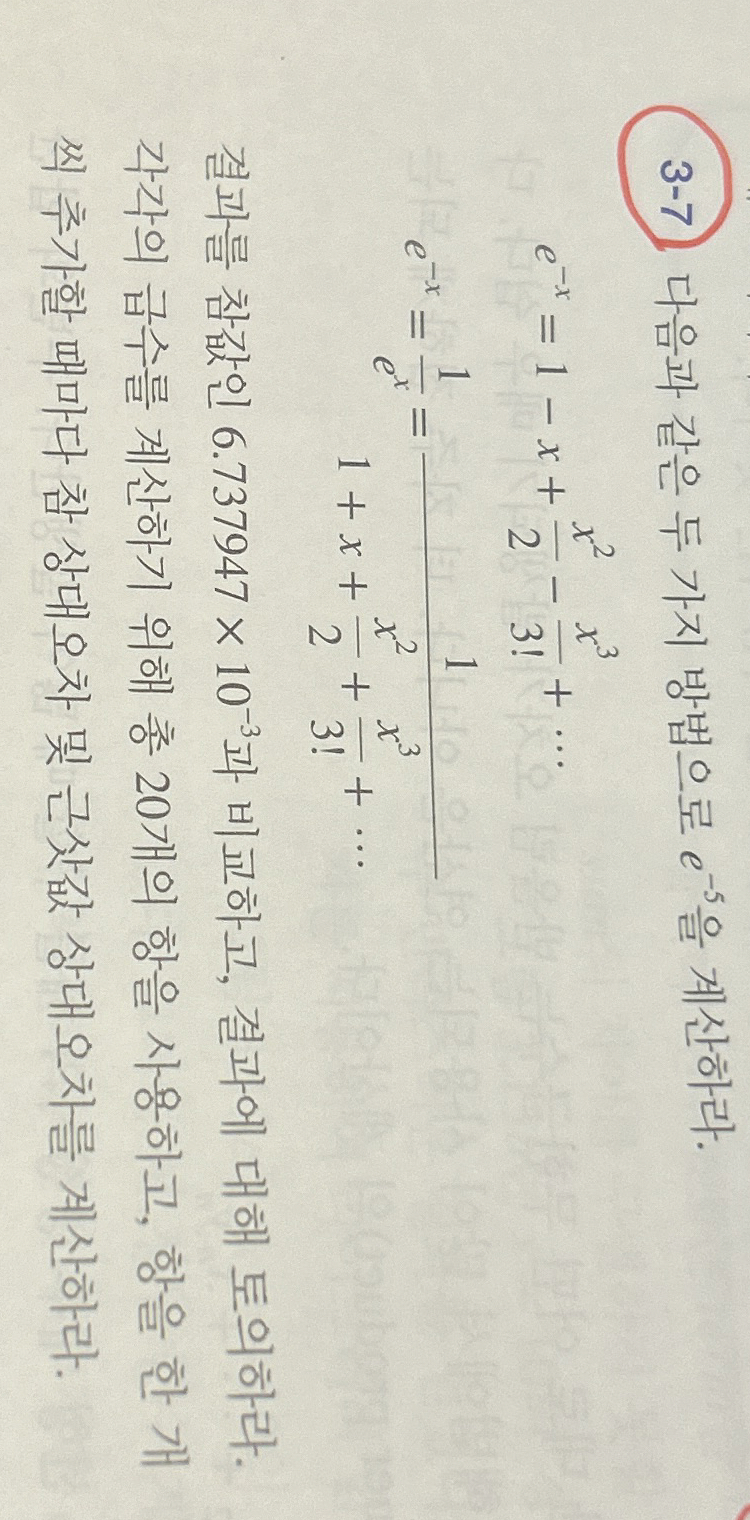 3-7 다음과 같은 두 가지 방법으로 e⁻⁵을 계산하라.
e⁻ˣ = 1 − x + x²/2 − x³/3! + ⋯
e⁻ˣ = 1/eˣ = 1/(1 + x + x²/2 + x³/3! + ⋯)
결과를 참값인 6.737947 × 10⁻³과 비교하고, 결과에 대해 토의하라.
각각의 급수를 계산하기 위해 총 20개의 항을 사용하고, 항을 한 개
씩 추가할 때마다 참 상대오차 및 근삿값 상대오차를 계산하라.